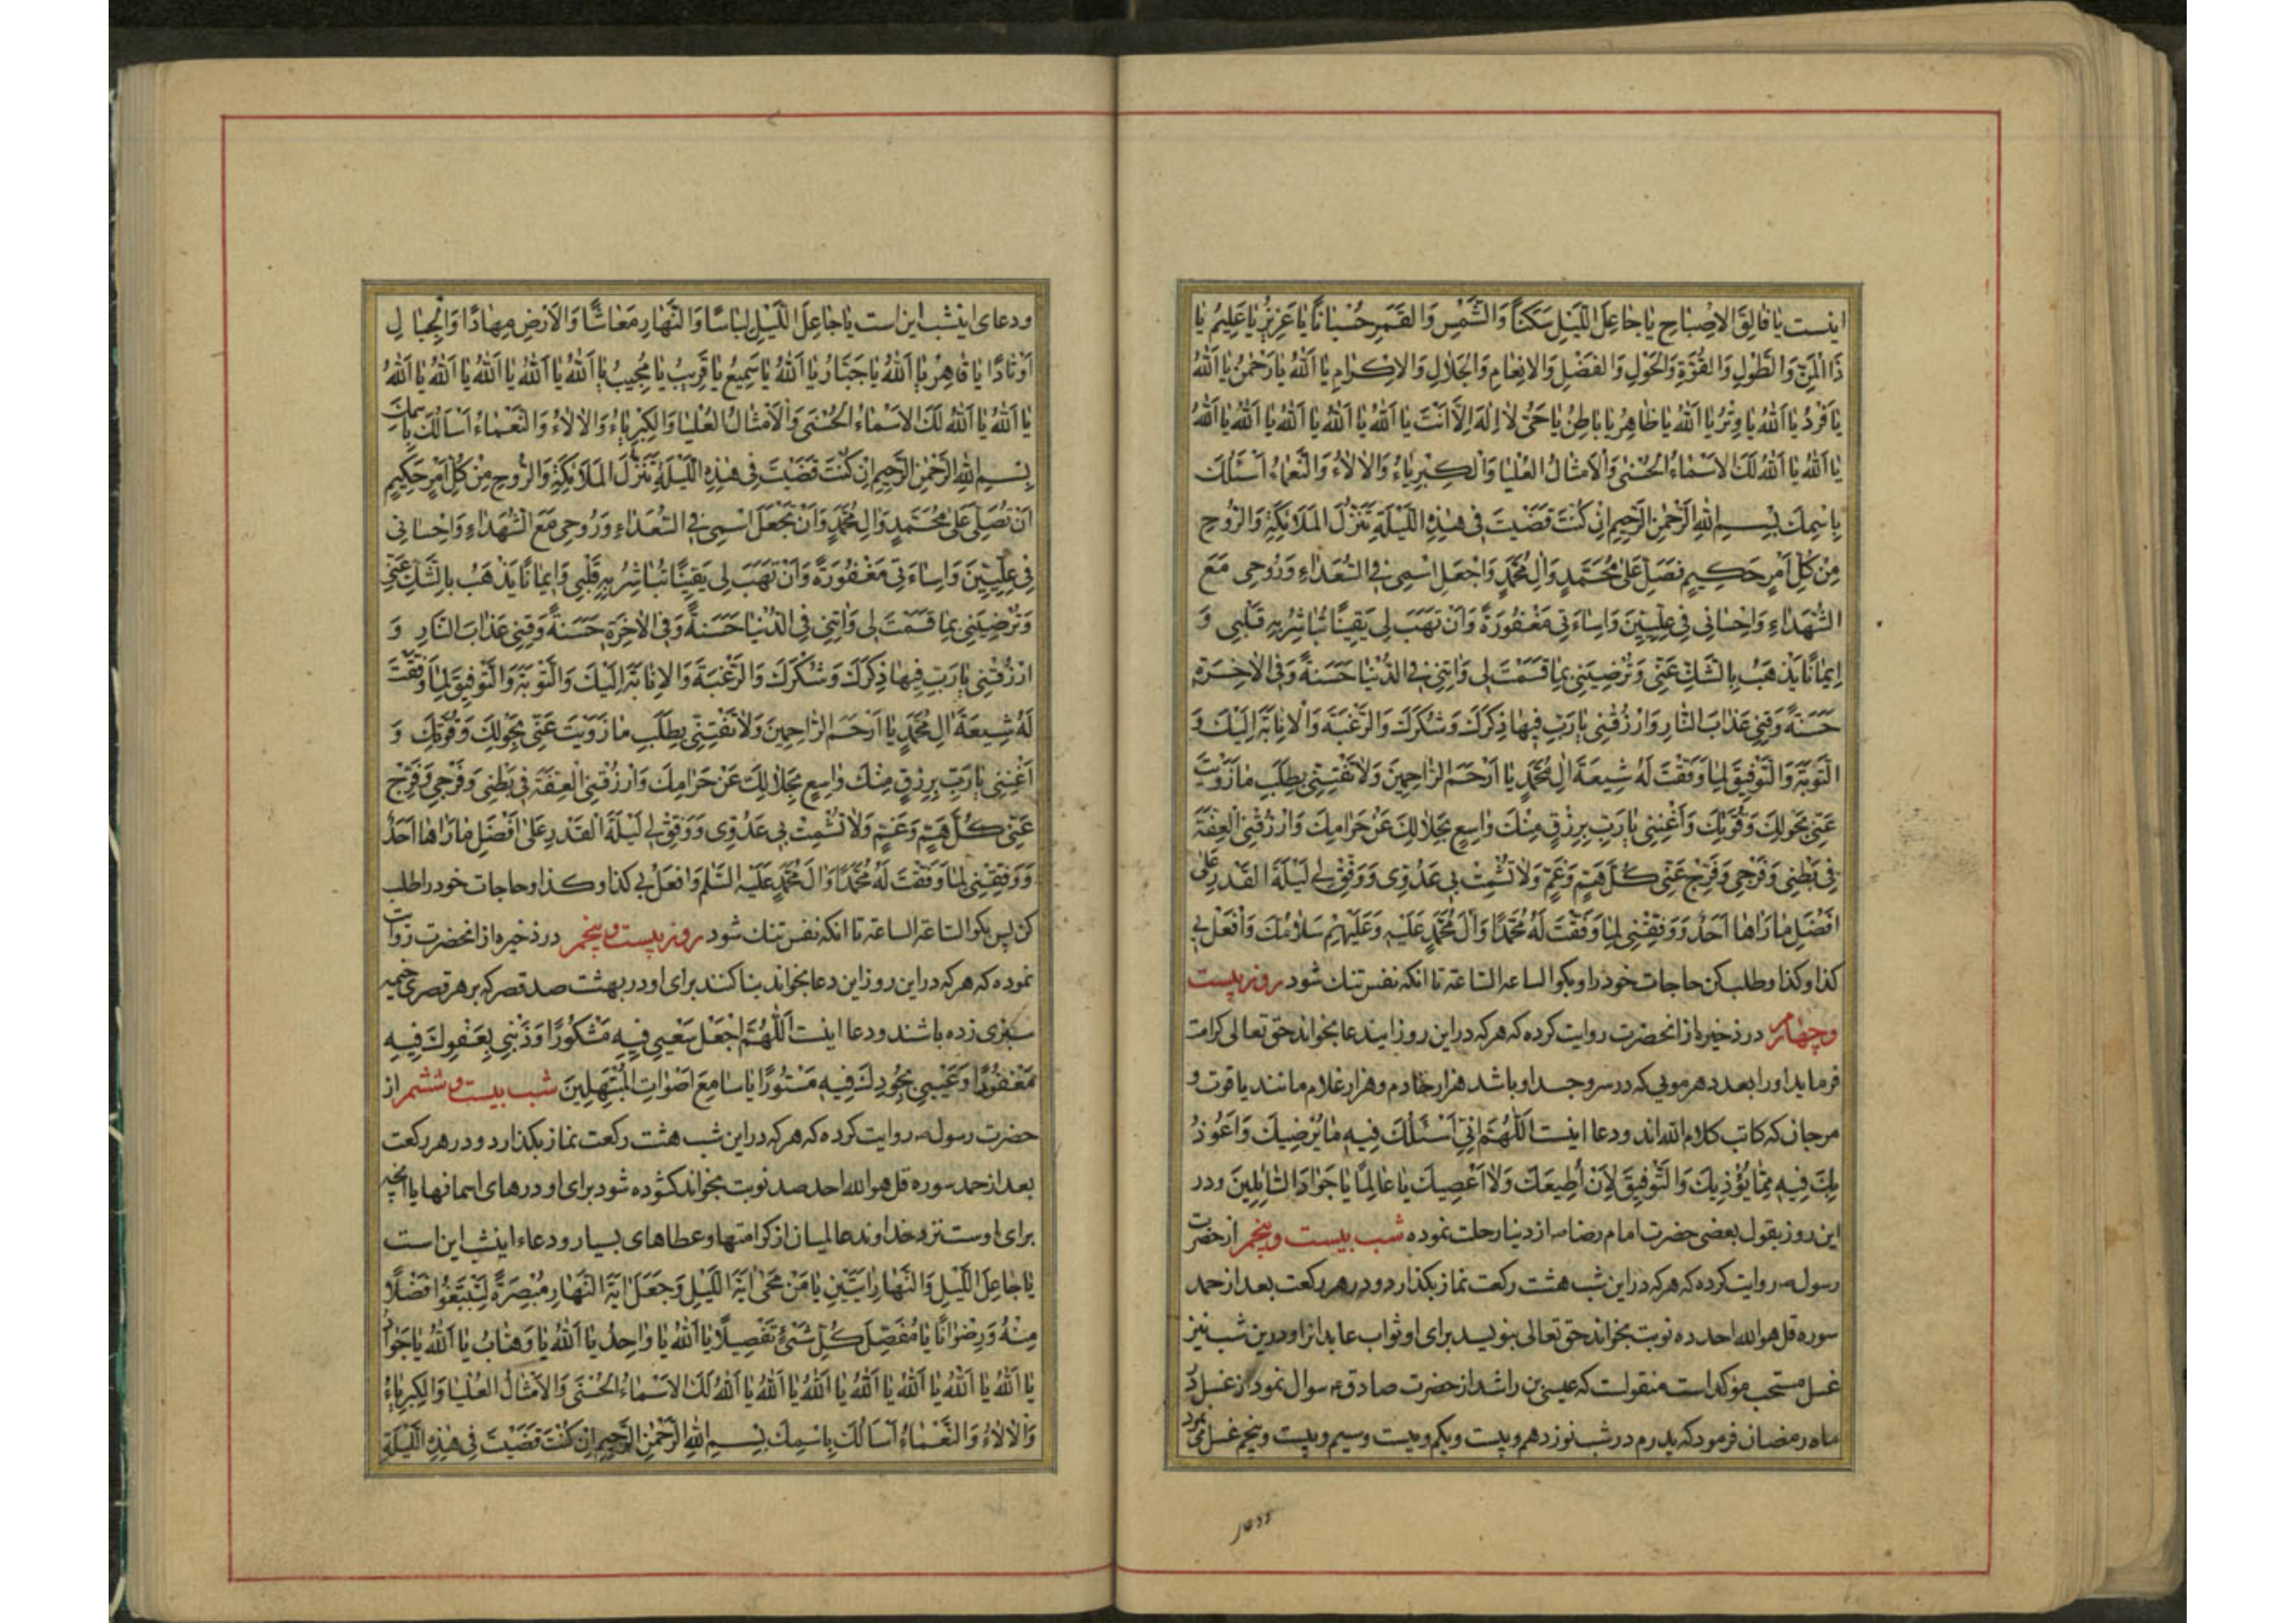 اینست یا فالِقَ الاِصْباحِ یا جاعِلَ اللَّیْلِ سَکَناً وَالشَّمْسِ وَالقَمَرِ حُسْباناً یا عَزِیزُ یا عَلِیمُ یا
ذَا الْمَنِّ وَالطَّوْلِ وَالقُوَّةِ وَالحَوْلِ وَالفَضْلِ وَالاِنْعامِ وَالجَلالِ وَالاِکْرامِ یا اَللهُ یا رَحْمٰنُ یا اَللهُ
یا فَرْدُ یا اَللهُ یا وِتْرُ یا اَللهُ یا ظاهِرُ یا باطِنُ یا حَیُّ لا اِلٰهَ اِلّا اَنْتَ یا اَللهُ یا اَللهُ یا اَللهُ یا اَللهُ
یا اَللهُ یا اَللهُ لَکَ الاَسْماءُ الحُسْنی وَالاَمْثالُ العُلْیا وَالکِبْرِیاءُ وَالاٰلاءُ وَالنَّعْماءُ اَسْئَلُکَ
بِاسْمِکَ بِسْمِ اللهِ الرَّحْمٰنِ الرَّحِیمِ اِنْ کُنْتَ قَضَیْتَ فی هٰذِهِ اللَّیْلَةِ تَنَزُّلَ المَلائِکَةِ وَالرُّوحِ
مِنْ کُلِّ اَمْرٍ حَکِیمٍ فَصَلِّ عَلیٰ مُحَمَّدٍ وَالِ مُحَمَّدٍ وَاجْعَلِ اسْمِی فِی السُّعَداءِ وَرُوحِی مَعَ
الشُّهَداءِ وَاِحْسانی فی عِلِّیِّینَ وَاِساءَتی مَغْفُورَةً وَاَنْ تَهَبَ لِی یَقِیناً تُباشِرُ بِهِ قَلْبِی وَ
اِیماناً یَذْهَبُ بِالشَّکِّ عَنِّی وَتُرْضِیَنِی بِما قَسَمْتَ لِی وَاٰتِنِی فِی الدُّنْیا حَسَنَةً وَفِی الاٰخِرَةِ
حَسَنَةً وَقِنِی عَذابَ النّارِ وَارْزُقْنِی یا رَبِّ فِیها ذِکْرَکَ وَشُکْرَکَ وَالرَّغْبَةَ وَالاِنابَةَ اِلَیْکَ وَ
التَّوْبَةَ وَالتَّوْفِیقَ لِما وَفَّقْتَ لَهُ شِیعَةَ الِ مُحَمَّدٍ یا اَرْحَمَ الرّاحِمِینَ وَلا تَفْتِنِّی بِطَلَبِ ما زَوَیْتَ
عَنِّی بِحَوْلِکَ وَقُوَّتِکَ وَاَغْنِنِی یا رَبِّ بِرِزْقٍ مِنْکَ واسِعٍ بِحَلالِکَ عَنْ حَرامِکَ وَارْزُقْنِی الْعِفَّةَ
فِی بَطْنِی وَفَرْجِی وَفَرِّجْ عَنِّی کُلَّ هَمٍّ وَغَمٍّ وَلا تُشْمِتْ بِی عَدُوِّی وَوَفِّقْ لِی لَیْلَةَ القَدْرِ عَلیٰ
اَفْضَلِ ما رَاٰها اَحَدٌ وَوَفِّقْنِی لِما وَفَّقْتَ لَهُ مُحَمَّداً وَاٰلَ مُحَمَّدٍ عَلَیْهِ وَعَلَیْهِمْ سَلامُکَ وَافْعَلْ بِی
کذا وکذا وطلب کن حاجات خود را وبکو الساعة الساعة تا انکه نفس تنك شود روز بیست
وچهارم در ذخیره از انحضرت روایت کرده که هرکه در این روز ایندعا بخواند حق تعالی کرامت
فرماید او را بعدد هر مویی که در سر وجسد او باشد هزار خادم وهزار غلام مانند یاقوت و
مرجان که کاتب کلام الله اند ودعا اینست اَللّٰهُمَّ اِنِّی اَسْئَلُکَ فِیهِ ما یُرْضِیکَ وَاَعُوذُ
بِکَ فِیهِ مِمّا یُؤْذِیکَ وَالتَّوْفِیقَ لِاَنْ اُطِیعَکَ وَلا اَعْصِیَکَ یا عالِماً یا جَوادَ السّائِلِینَ ودر
این روز بقول بعضی حضرت امام رضا ع از دنیا رحلت نموده شب بیست وپنجم از حضرت
رسول ص روایت کرده که هرکه در این شب هشت رکعت نماز بکذارد ودر هر رکعت بعد از حمد
سوره قل هو الله احد ده نوبت بخواند حق تعالی بنویسد برای او ثواب عابدانرا ودرین شب نیز
غسل مستحب مؤکد است منقولست که عیسی بن راشد از حضرت صادق ع سوال نمود از غسل در
ماه رمضان فرمود که پدرم در شب نوزدهم وبیست ویکم وبیست وسیم وبیست وپنجم غسل می نمود
ودعای اینشب این است یا جاعِلَ اللَّیْلِ لِباساً وَالنَّهارِ مَعاشاً وَالاَرْضِ مِهاداً وَالْجِبالِ
اَوْتاداً یا قاهِرُ یا اَللهُ یا جَبّارُ یا اَللهُ یا سَمِیعُ یا قَرِیبُ یا مُجِیبُ یا اَللهُ یا اَللهُ یا اَللهُ یا اَللهُ یا اَللهُ
یا اَللهُ یا اَللهُ لَکَ الاَسْماءُ الحُسْنی وَالاَمْثالُ العُلْیا وَالکِبْرِیاءُ وَالاٰلاءُ وَالنَّعْماءُ اَسْاَلُکَ بِاسْمِکَ
بِسْمِ اللهِ الرَّحْمٰنِ الرَّحِیمِ اِنْ کُنْتَ قَضَیْتَ فِی هٰذِهِ اللَّیْلَةِ تَنَزُّلَ المَلائِکَةِ وَالرُّوحِ مِنْ کُلِّ اَمْرٍ حَکِیمٍ
اَنْ تُصَلِّیَ عَلیٰ مُحَمَّدٍ وَالِ مُحَمَّدٍ وَاَنْ تَجْعَلَ اسْمِی فِی السُّعَداءِ وَرُوحِی مَعَ الشُّهَداءِ وَاِحْسانی
فِی عِلِّیِّینَ وَاِساءَتی مَغْفُورَةً وَاَنْ تَهَبَ لِی یَقِیناً تُباشِرُ بِهِ قَلْبِی وَاِیماناً یَذْهَبُ بِالشَّکِّ عَنِّی
وَتُرْضِیَنِی بِما قَسَمْتَ لِی وَاٰتِنِی فِی الدُّنْیا حَسَنَةً وَفِی الاٰخِرَةِ حَسَنَةً وَقِنِی عَذابَ النّارِ وَ
ارْزُقْنِی یا رَبِّ فِیها ذِکْرَکَ وَشُکْرَکَ وَالرَّغْبَةَ وَالاِنابَةَ اِلَیْکَ وَالتَّوْبَةَ وَالتَّوْفِیقَ لِما وَفَّقْتَ
لَهُ شِیعَةَ الِ مُحَمَّدٍ یا اَرْحَمَ الرّاحِمِینَ وَلا تَفْتِنِّی بِطَلَبِ ما زَوَیْتَ عَنِّی بِحَوْلِکَ وَقُوَّتِکَ وَ
اَغْنِنِی یا رَبِّ بِرِزْقٍ مِنْکَ واسِعٍ بِحَلالِکَ عَنْ حَرامِکَ وَارْزُقْنِی الْعِفَّةَ فِی بَطْنِی وَفَرْجِی وَفَرِّجْ
عَنِّی کُلَّ هَمٍّ وَغَمٍّ وَلا تُشْمِتْ بِی عَدُوِّی وَوَفِّقْ لِی لَیْلَةَ القَدْرِ عَلیٰ اَفْضَلِ ما رَاٰها اَحَدٌ
وَوَفِّقْنِی لِما وَفَّقْتَ لَهُ مُحَمَّداً وَاٰلَ مُحَمَّدٍ عَلَیْهِ السَّلَم وَافْعَلْ بِی کذا وکذا وحاجات خود را طلب
کن پس بکو الساعة الساعة تا انکه نفس تنك شود روز بیست وپنجم در ذخیره از انحضرت روایت
نموده که هرکه در این روز این دعا بخواند بنا کنند برای او در بهشت صد قصر که بر هر قصری خیمه
سبزی زده باشند ودعا اینست اَللّٰهُمَّ اجْعَلْ سَعْیِی فِیهِ مَشْکُوراً وَذَنْبِی بِعَفْوِکَ فِیهِ
مَغْفُوراً وَعَیْبِی بِجُودِکَ فِیهِ مَسْتُوراً یا سامِعَ اَصْواتِ الْمُبْتَهِلِینَ شب بیست وششم از
حضرت رسول ص روایت کرده که هرکه در این شب هشت رکعت نماز بکذارد ودر هر رکعت
بعد از حمد سوره قل هو الله احد صد نوبت بخواند کشوده شود برای او درهای اسمانها با انچه
برای اوست نزد خداوند عالمیان از کرامتها وعطاهای بسیار ودعاء اینشب این است
یا جاعِلَ اللَّیْلِ وَالنَّهارِ اٰیَتَیْنِ یا مَنْ مَحیٰ اٰیَةَ اللَّیْلِ وَجَعَلَ اٰیَةَ النَّهارِ مُبْصِرَةً لِتَبْتَغُوا فَضْلاً
مِنْهُ وَرِضْواناً یا مُفَصِّلَ کُلِّ شَیْءٍ تَفْصِیلاً یا اَللهُ یا واحِدُ یا اَللهُ یا وَهّابُ یا اَللهُ یا جَوادُ
یا اَللهُ یا اَللهُ یا اَللهُ یا اَللهُ یا اَللهُ یا اَللهُ یا اَللهُ لَکَ الاَسْماءُ الحُسْنی وَالاَمْثالُ العُلْیا وَالکِبْرِیاءُ
وَالاٰلاءُ وَالنَّعْماءُ اَسْاَلُکَ بِاسْمِکَ بِسْمِ اللهِ الرَّحْمٰنِ الرَّحِیمِ اِنْ کُنْتَ قَضَیْتَ فِی هٰذِهِ اللَّیْلَةِ